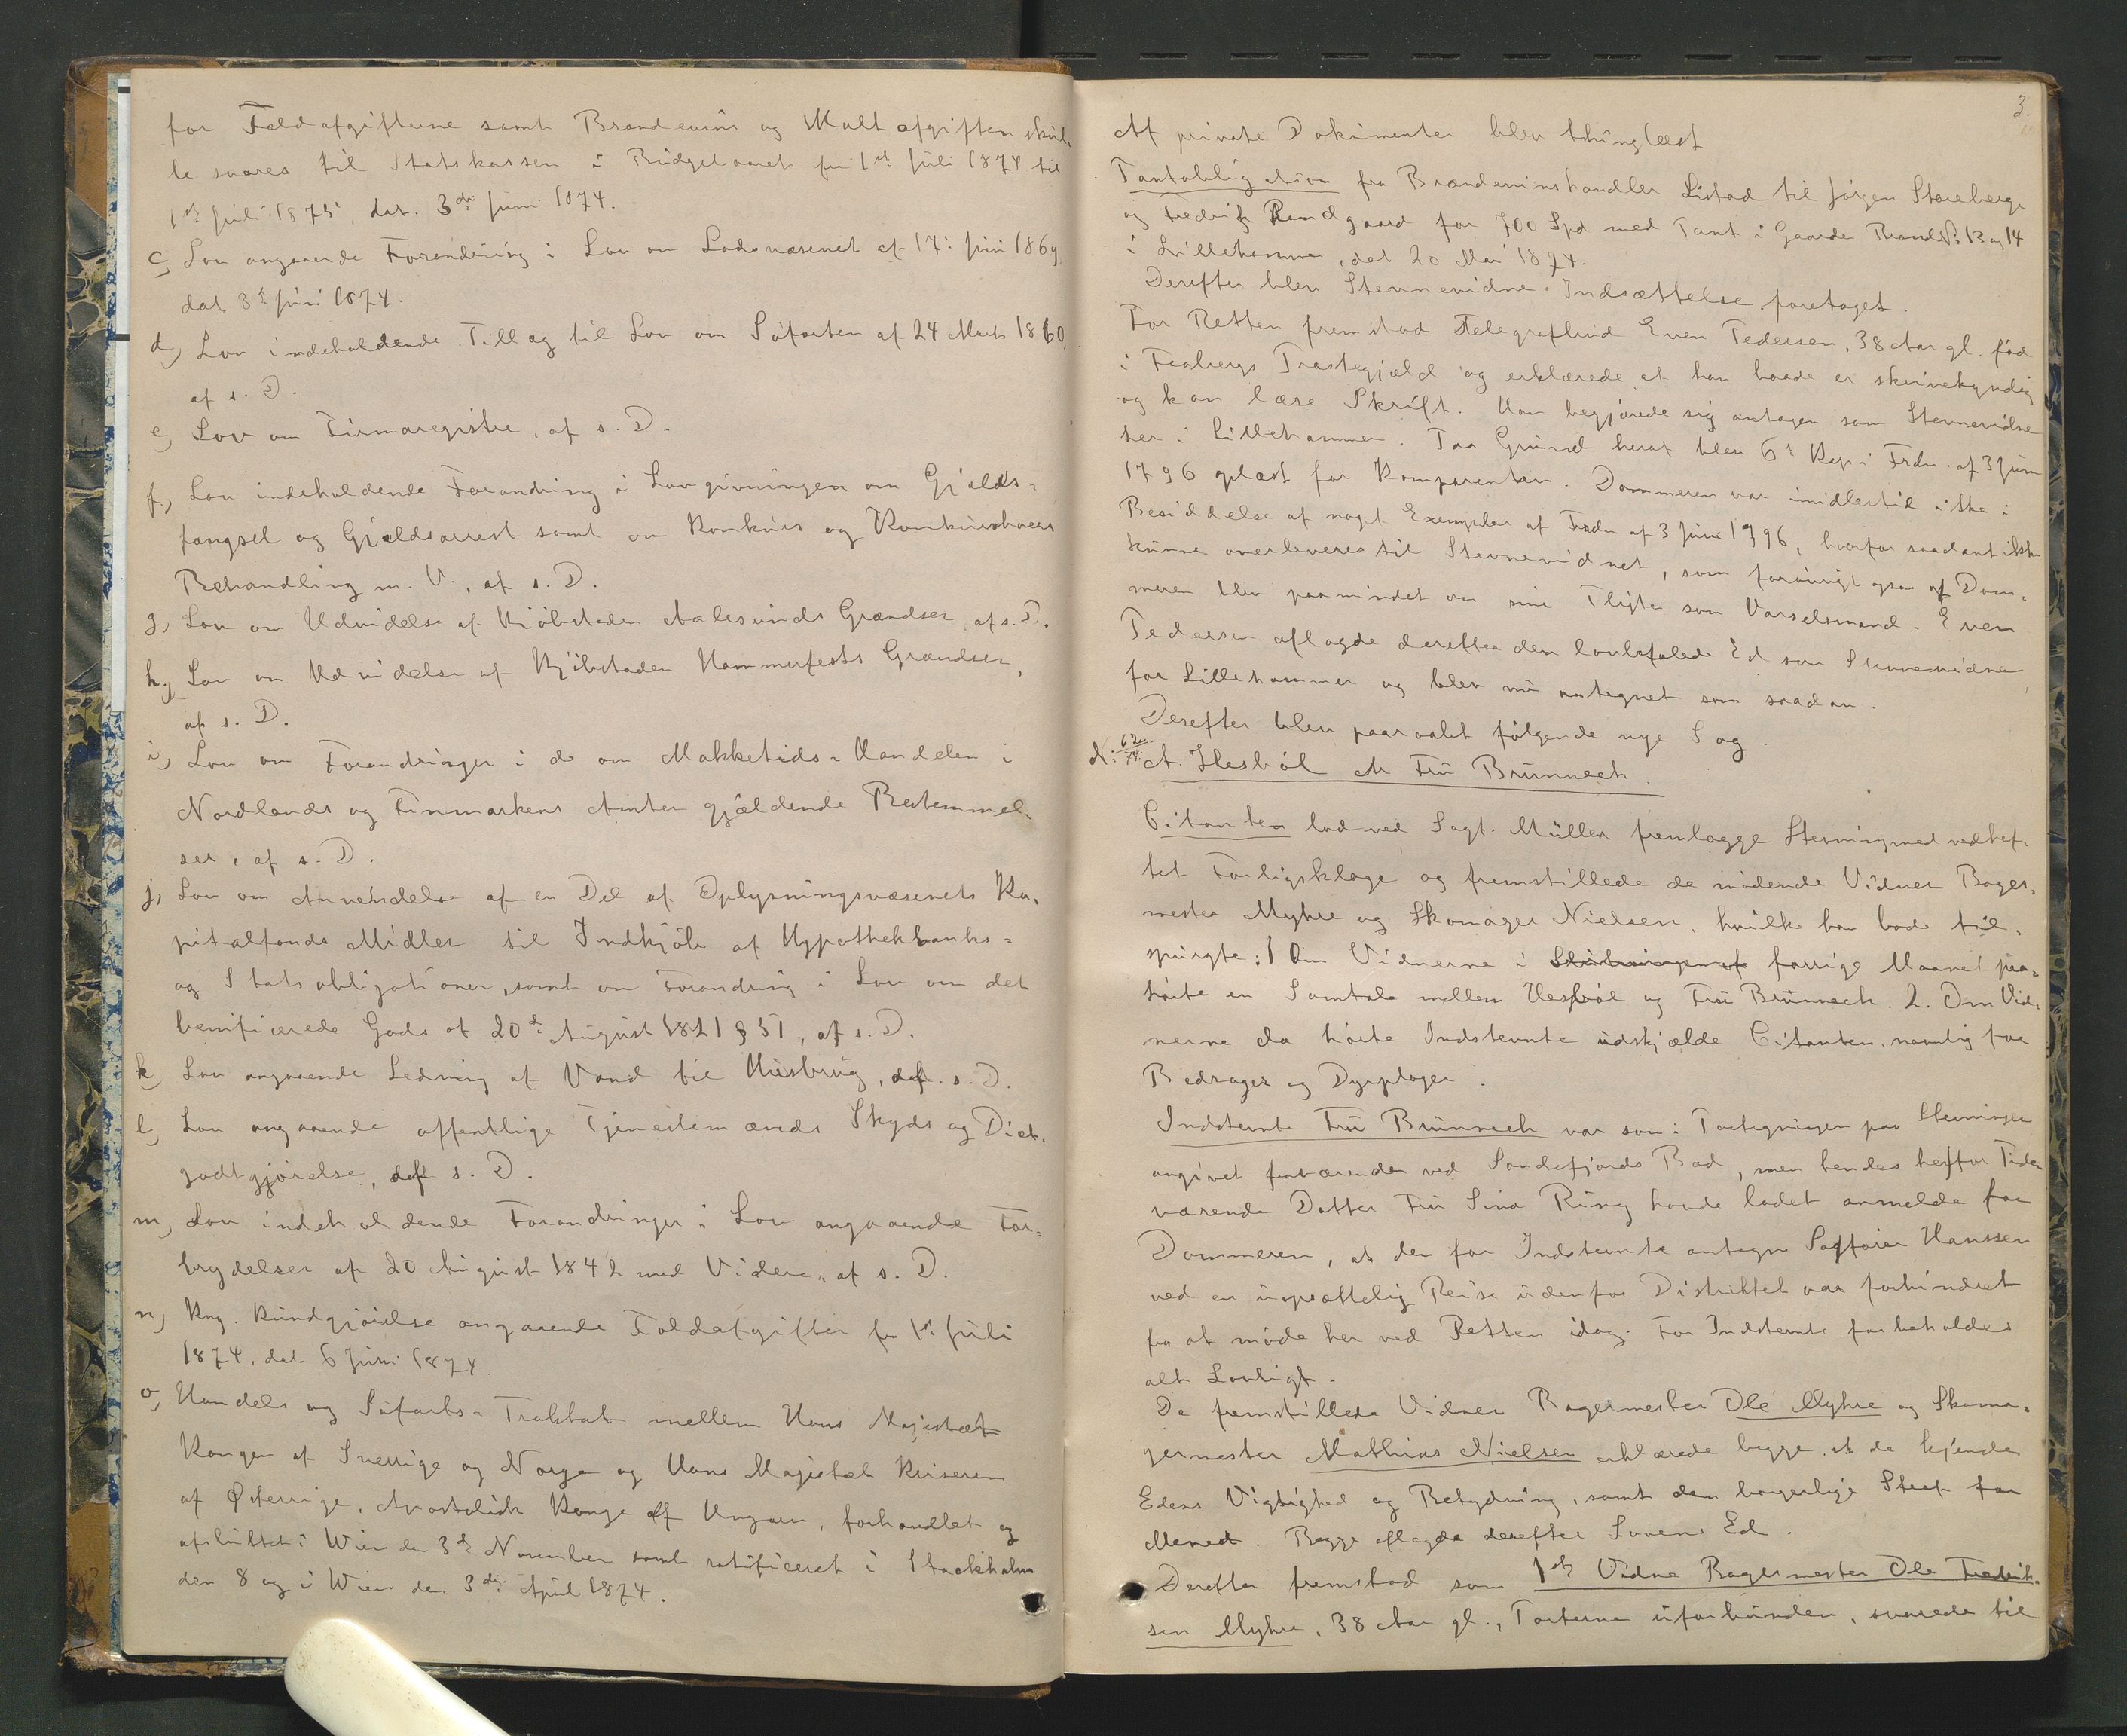 for Toldafgifterne samt Brændeviins og Maltafgiften skul-
le svares til Statskassen i Budgetaaret fra 1ste Juli 1874 til
1ste Juli 1875, dat. 3die Juni 1874.
c, Lov angaaende Forandring i Lov om Lodsvæsenet af 17. Juni 1869,
dat 3die Juni 1874.
d, Lov indeholdende Tillæg til Lov om Søfarten af 24 Marts 1860
af s. D.
e, Lov om Firmaregistre, af s. D.
f, Lov indeholdende Forandring i Lovgivningen om Gjælds-
fængsel og Gjældsarrest samt om Konkurs og Konkursboers
Behandling m. V., af s. D.
g, Lov om Udvidelse af Kjøbstaden Aalesunds Grændser, af s. D.
h, Lov om Udvidelse af Kjøbstaden Hammerfests Grændser,
af s. D.
i, Lov om Forandringer i de om Makketids-Handelen i
Nordlands og Finmarkens Amter gjældende Bestemmel-
ser, af s. D.
j, Lov om Anvendelse af en Del af Oplysningsvæsenets Ka-
pitalfonds Midler til Indkjøb af Hypothekbanks-
og Statsobligationer, samt om Forandring i Lov om det
benificerede Gods af 20de August 1821 § 51, af s. D.
k, Lov angaaende Ledning af Vand til Husbrug, af s. D.
l, Lov angaaende offentlige Tjenestemænds Skyds og Diæt-
godtgjørelse, af s. D.
m, Lov indeholdende Forandringer i Lov angaaende For-
brydelser af 20 August 1842 med Videre, af s. D.
n, Kng. Kundgjørelse angaaende Toldafgifter fra 1ste Juli
1874, dat. 6 Juni 1874.
o, Handels og Søfarts-Traktat mellem Hans Majestæt
Kongen af Sverrige og Norge og Hans Majestæt Keiseren
af Østerrige, Apostolisk Konge af Ungarn, forhandlet og
afsluttet i Wien den 3die November samt ratificeret i Stockholm
den 8 og i Wien den 3die April 1874.
3.
Af private Dokumenter blev thinglæst
Pantobligation fra Brændevinshandler Listad til Jørgen Storeberge
og Fredrik Sendgaard for 700 Spd med Pant i Gaarde Brand No 13 og 14
i Lillehammer, dat 20 Mai 1874.
Derefter blev Stevnevidne-Indsættelse foretaget.
For Retten fremstod Telegrafbud Even Pedersen, 38 Aar gl. fød
i Faabergs Præstegjæld og erklærede at han baade er skrivekyndig
og kan læse Skrift. Han begjærede sig antagen som Stevnevidne
her i Lillehammer. Paa Grund heraf blev 6te Kap i Frdn. af 3 Juni
1796 oplæst for Komparenten. Dommeren var imidlertid ikke i
Besiddelse af noget Exemplar af Frdn af 3 Juni 1796, hvorfor saadant ikke
kunne overleveres til Stevnevidnet, som forøvrigt ogsaa af Dom-
meren blev paamindet om sine Pligter som Varselsmand. Even
Pedersen aflagde derefter den lovbefalede Ed som Stevnevidne
for Lillehammer og blev nu antegnet som saadan.
Derefter blev paaraabt følgende nye Sag.
N: 62/74. A. Hesbøl Fru Brünnech.
Citanten lod ved Sagf. Müller fremlægge Stevning med vedhef-
tet Forligsklage og fremstillede de mødende Vidner Bager-
mester Myhre og Skomager Nielsen, hvilke han bad til-
spurgte: 1 Om Vidnerne i forrige Maaned paa-
hørte en Samtale mellem Hesbøl og Fru Brünnech. 2. Om Vid-
nerne da hørte Indstevnte udskjælde Citanten, navnlig for
Bedrager og Dyrplager.
Indstevnte Fru Brünnech var som i Paategningen paa Stevningen
angivet fraværende ved Sandefjords Bad, men hendes herfor Tiden
værende Datter Fru Sina Ring havde ladet anmelde for
Dommeren, at den for Indstevnte antagne Sagfører Hanssen
ved en uopsættelig Reise udenfor Distriktet var forhindret
fra at møde her ved Retten idag. For Indstevnte forbeholdes
alt Lovligt.
De fremstillede Vidner Bagermester Ole Myhre og Skoma-
germester Mathias Nielsen erklærede begge, at de kjende
Edens Vigtighed og Betydning, samt den borgerlige Straf for
Meened. Begge aflagde derefter Sin Ed.
Derefter fremstod som 1ste Vidne Bagermester Ole Fredrik-
sen Myhre, 38 Aar gl., Parterne uforbunden, svarede til